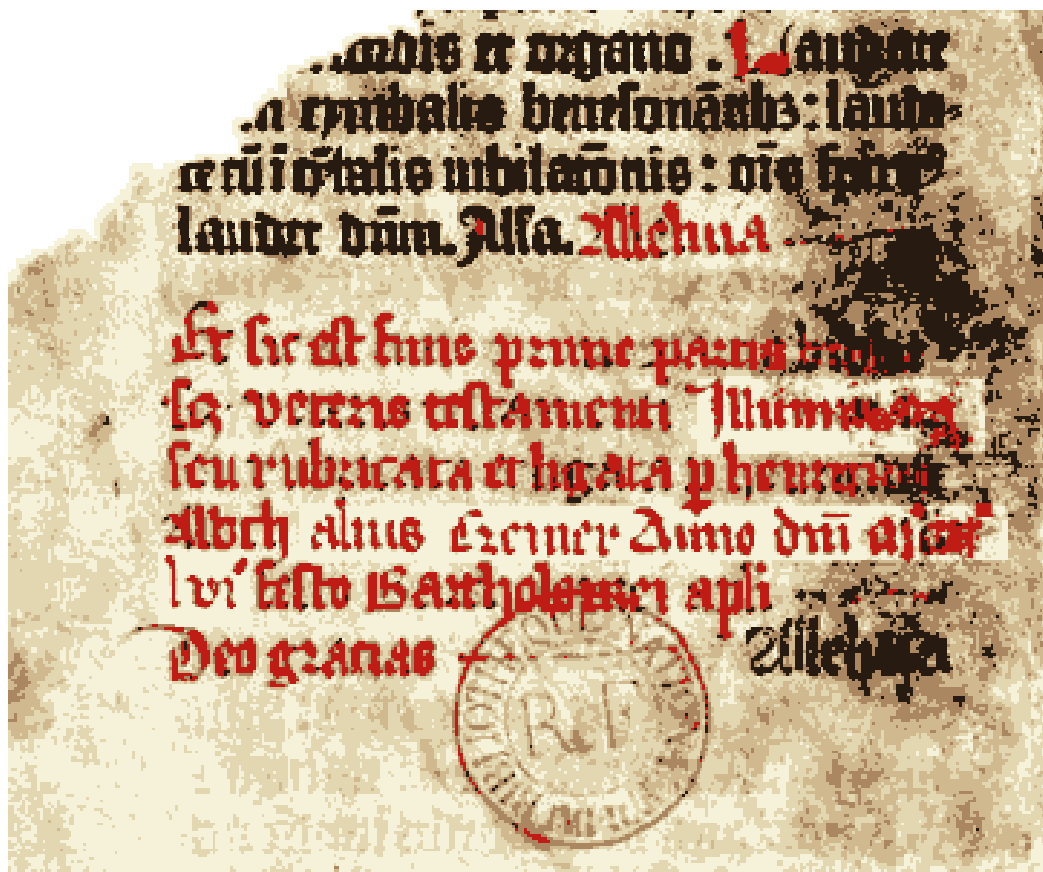 cordis et organo . Laudate
in cymbalis benesonātibꝫ : lauda-
te eū ī cȳbalis iubilatōnis : oīs spirit⁹
laudet dn̄m. Alla. Alleluia
Et sic est finis prime partis biblie
scꝫ veteris testamenti Illuminata
seu rubricata et ligata ꝑ henricum
Albch alius Cremer Anno dn̄i
lvi festo Bartholomei apli
Deo gratias Alleluia
R F